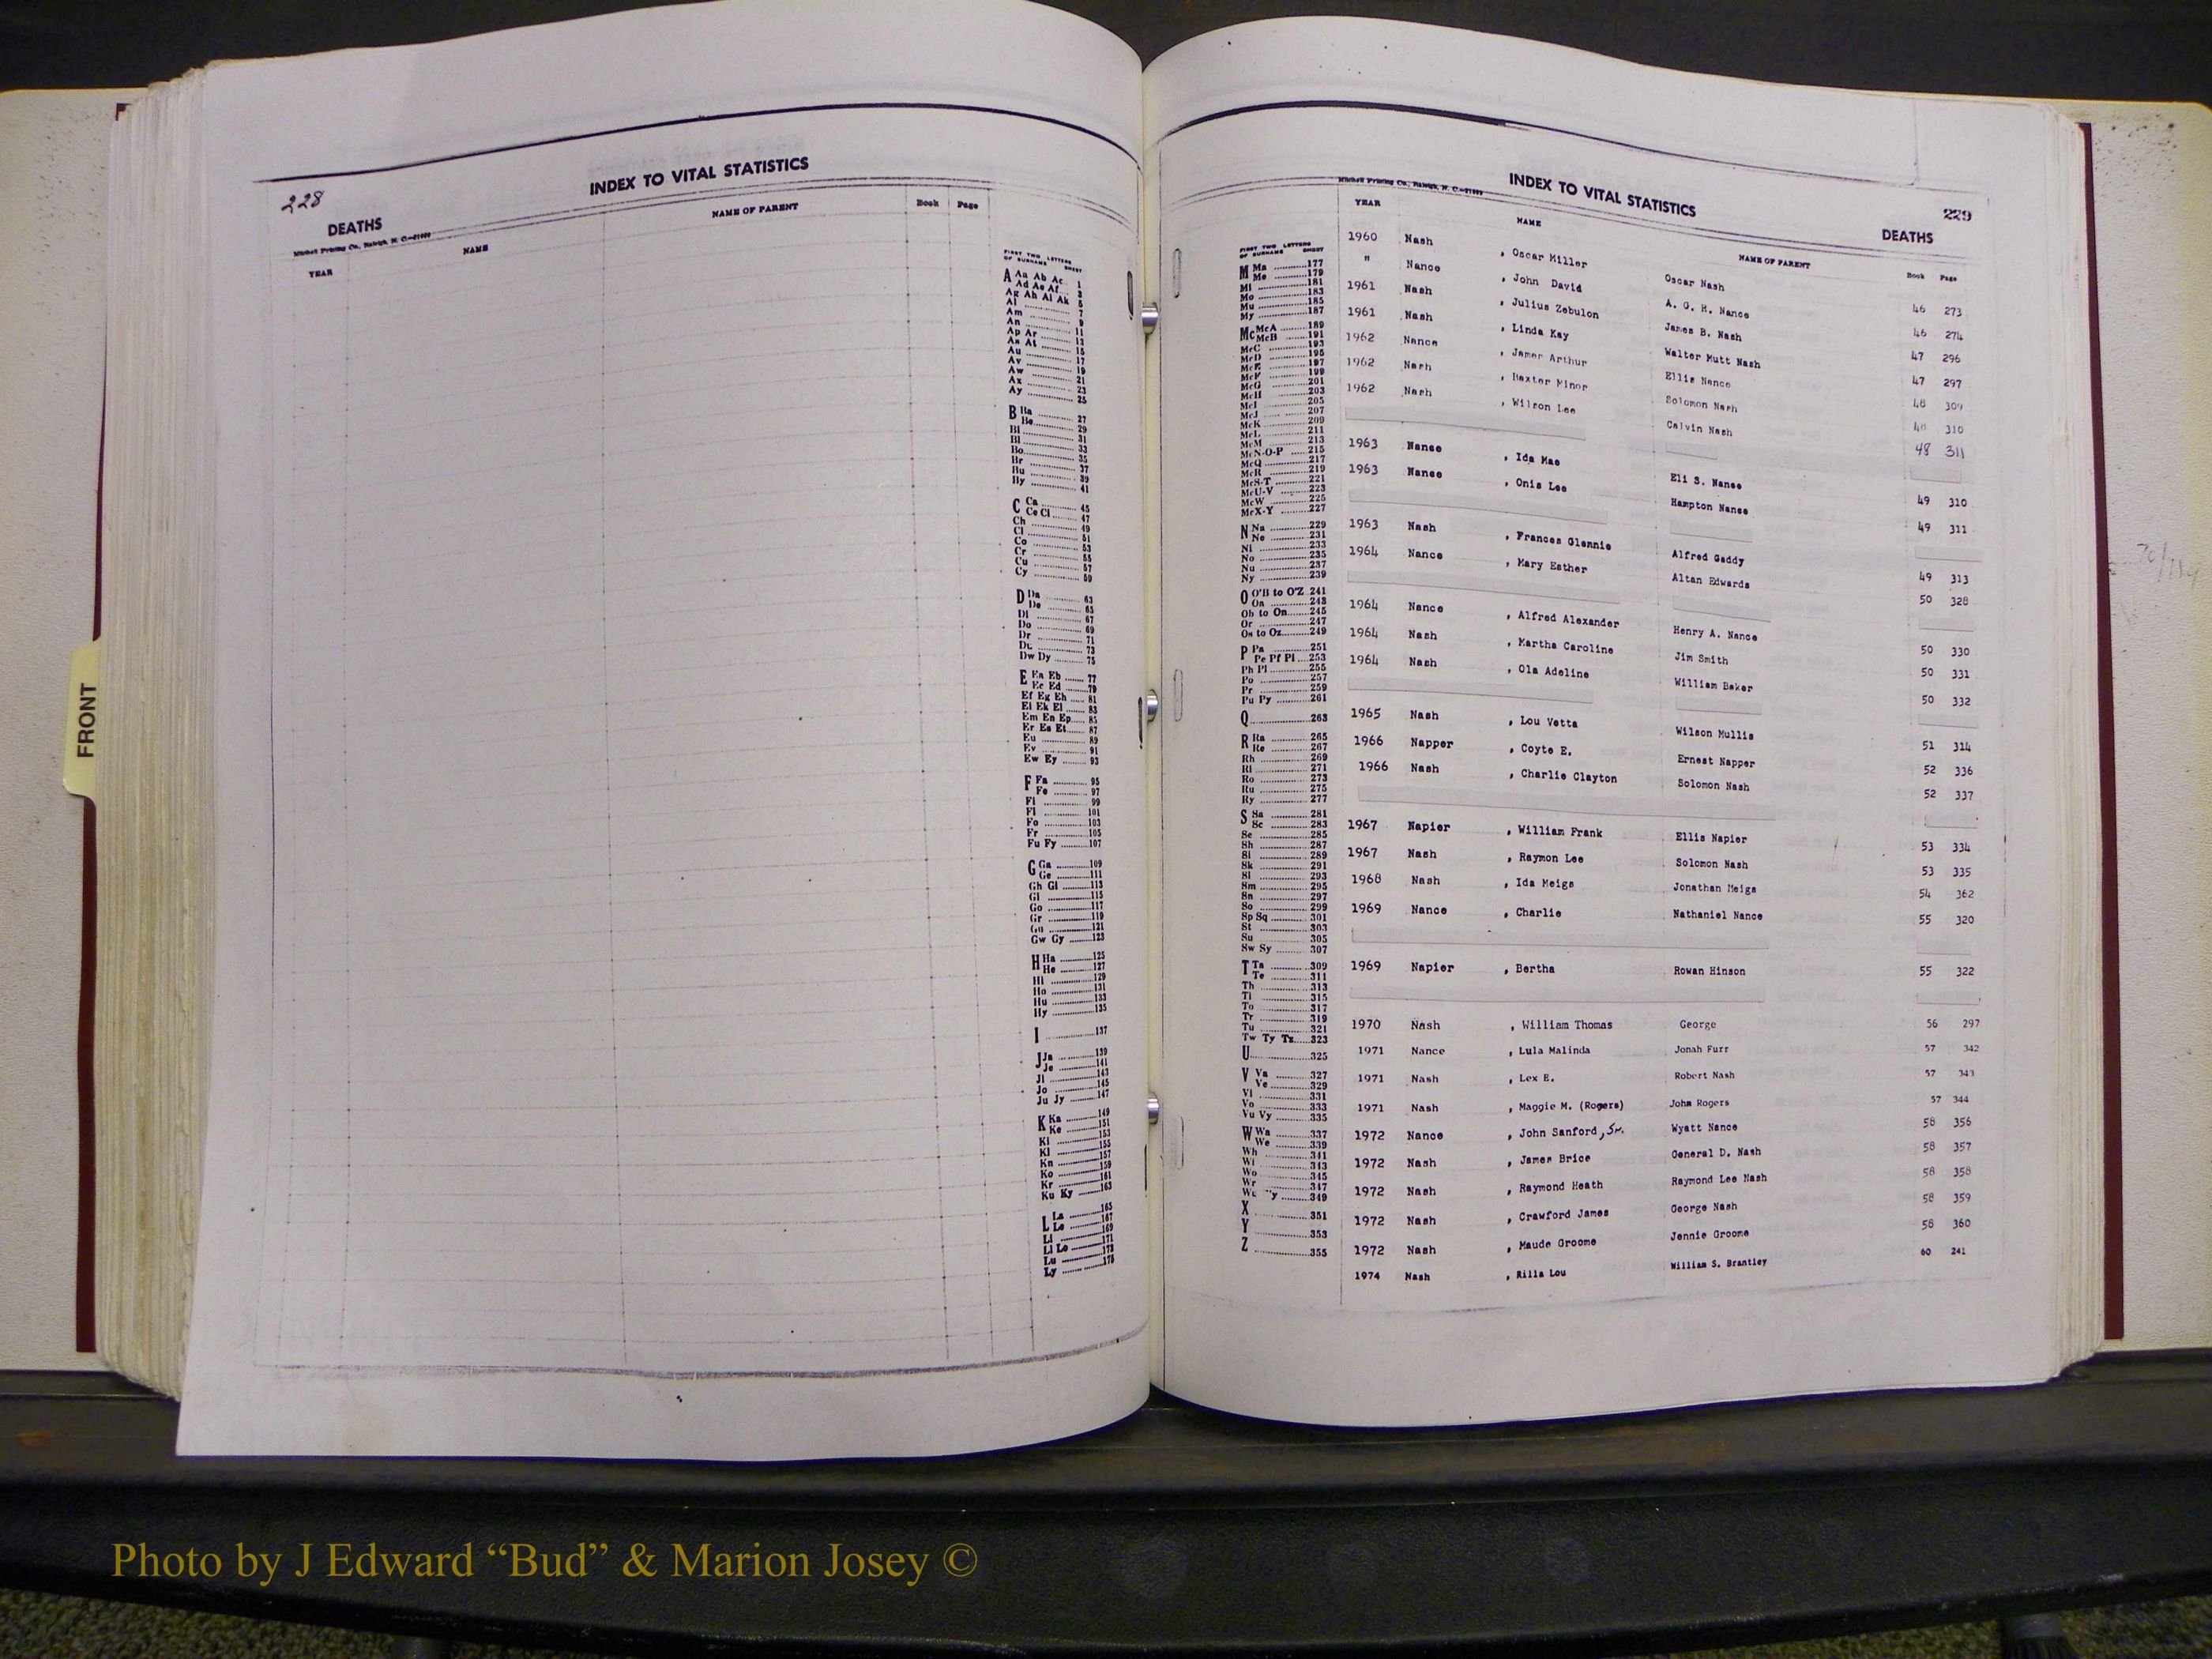 228
INDEX TO VITAL STATISTICS
DEATHS
YEAR NAME NAME OF PARENT Book Page
FIRST TWO LETTERS OF SURNAME SHEET
A Aa Ab Ac 1
Ad Ae Af 3
Ag Ah Ai Ak 5
Al 7
Am 9
An 11
Ap Ar 13
As At 15
Au 17
Av 19
Aw 21
Ax 23
Ay 25
B Ba 27
Be 29
Bi 31
Bl 33
Bo 35
Br 37
Bu 39
By 41
C Ca 45
Ce Ci 47
Ch 49
Cl 51
Co 53
Cr 55
Cu 57
Cy 59
D Da 63
De 65
Di 67
Do 69
Dr 71
Du 73
Dw Dy 75
E Ea Eb 77
Ec Ed 79
Ef Eg Eh 81
Ei Ek El 83
Em En Ep 85
Er Es Et 87
Eu 89
Ev 91
Ew Ey 93
F Fa 95
Fe 97
Fi 99
Fl 101
Fo 103
Fr 105
Fu Fy 107
G Ga 109
Ge 111
Gh Gi 113
Gl 115
Go 117
Gr 119
Gu 121
Gw Gy 123
H Ha 125
He 127
Hi 129
Ho 131
Hu 133
Hy 135
I 137
J Ja 139
Je 141
Ji 143
Jo 145
Ju Jy 147
K Ka 149
Ke 151
Ki 153
Kl 155
Kn 157
Ko 159
Kr 161
Ku Ky 163
L La 165
Le 167
Li 169
Ll Lo 171
Lu 173
Ly 175
FRONT
INDEX TO VITAL STATISTICS
229
Mitchell Printing Co., Raleigh, N. C.
DEATHS
YEAR NAME NAME OF PARENT Book Page
FIRST TWO LETTERS OF SURNAME SHEET
M Ma 177
Me 179
Mi 181
Mo 183
Mu 185
My 187
Mc McA 189
McB 191
McC 193
McD 195
McE 197
McF 199
McG 201
McH 203
McI 205
McJ 207
McK 209
McL 211
McM 213
McN-O-P 215
McQ 217
McR 219
McS-T 221
McU-V 223
McW 225
McX-Y 227
N Na 229
Ne 231
Ni 233
No 235
Nu 237
Ny 239
O O'B to O'Z 241
Oa 243
Ob to On 245
Or 247
Os to Oz 249
P Pa 251
Pe Pf Pi 253
Ph Pl 255
Po 257
Pr 259
Pu Py 261
Q 263
R Ra 265
Re 267
Rh 269
Ri 271
Ro 273
Ru 275
Ry 277
S Sa 281
Sc 283
Se 285
Sh 287
Si 289
Sk 291
Sl 293
Sm 295
Sn 297
So 299
Sp Sq 301
St 303
Su 305
Sw Sy 307
T Ta 309
Te 311
Th 313
Ti 315
To 317
Tr 319
Tu 321
Tw Ty Tz 323
U 325
V Va 327
Ve 329
Vi 331
Vo 333
Vu Vy 335
W Wa 337
We 339
Wh 341
Wi 343
Wo 345
Wr 347
y 349
X 351
Y 353
Z 355
1960 Nash , Oscar Miller Oscar Nash 46 273
" Nance , John David A. G. H. Nance 46 274
1961 Nash , Julius Zebulon James B. Nash 47 296
1961 Nash , Linda Kay Walter Mutt Nash 47 297
1962 Nance , James Arthur Ellis Nance 48 309
1962 Nash , Baxter Minor Solomon Nash 48 310
1962 Nash , Wilson Lee Calvin Nash 48 311
1963 Nance , Ida Mae Eli S. Nance 49 310
1963 Nance , Onis Lee Hampton Nance 49 311
1963 Nash , Frances Glennie Alfred Gaddy 49 313
1964 Nance , Mary Esther Altan Edwards 50 328
1964 Nance , Alfred Alexander Henry A. Nance 50 330
1964 Nash , Martha Caroline Jim Smith 50 331
1964 Nash , Ola Adeline William Baker 50 332
1965 Nash , Lou Vetta Wilson Mullis 51 314
1966 Napper , Coyte E. Ernest Napper 52 336
1966 Nash , Charlie Clayton Solomon Nash 52 337
1967 Napier , William Frank Ellis Napier 53 334
1967 Nash , Raymon Lee Solomon Nash 53 335
1968 Nash , Ida Meigs Jonathan Meigs 54 362
1969 Nance , Charlie Nathaniel Nance 55 320
1969 Napier , Bertha Rowan Hinson 55 322
1970 Nash , William Thomas George 56 297
1971 Nance , Lula Malinda Jonah Furr 57 342
1971 Nash , Lex E. Robert Nash 57 343
1971 Nash , Maggie M. (Rogers) John Rogers 57 344
1972 Nance , John Sanford, Sr. Wyatt Nance 58 356
1972 Nash , James Brice General D. Nash 58 357
1972 Nash , Raymond Heath Raymond Lee Nash 58 358
1972 Nash , Crawford James George Nash 58 359
1972 Nash , Maude Groome Jennie Groome 58 360
1974 Nash , Rilla Lou William S. Brantley 60 241
Photo by J Edward “Bud” & Marion Josey ©